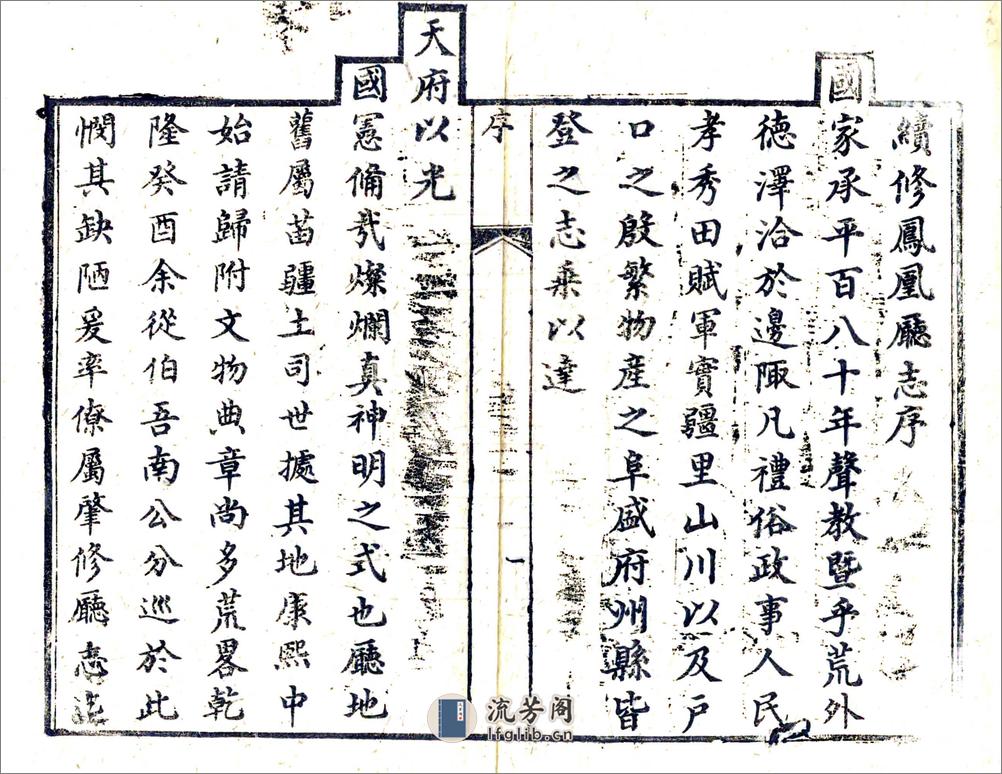 續修鳳凰廳志序
國家承平百八十年聲教暨乎荒外
德澤洽於邊陬凡禮俗政事人民
孝秀田賦軍實疆里山川以及戶
口之殷繁物產之阜盛府州縣皆
登之志乗以達
序
一
天府以光
國憲備哉燦爛真神明之式也廳地
舊屬苗疆土司世據其地康熙中
始請歸附文物典章尚多荒畧乾
隆癸酉余從伯吾南公分巡於此
憫其缺陋爰率僚屬肇修廳志迄
流芳阁
lfglib.cn